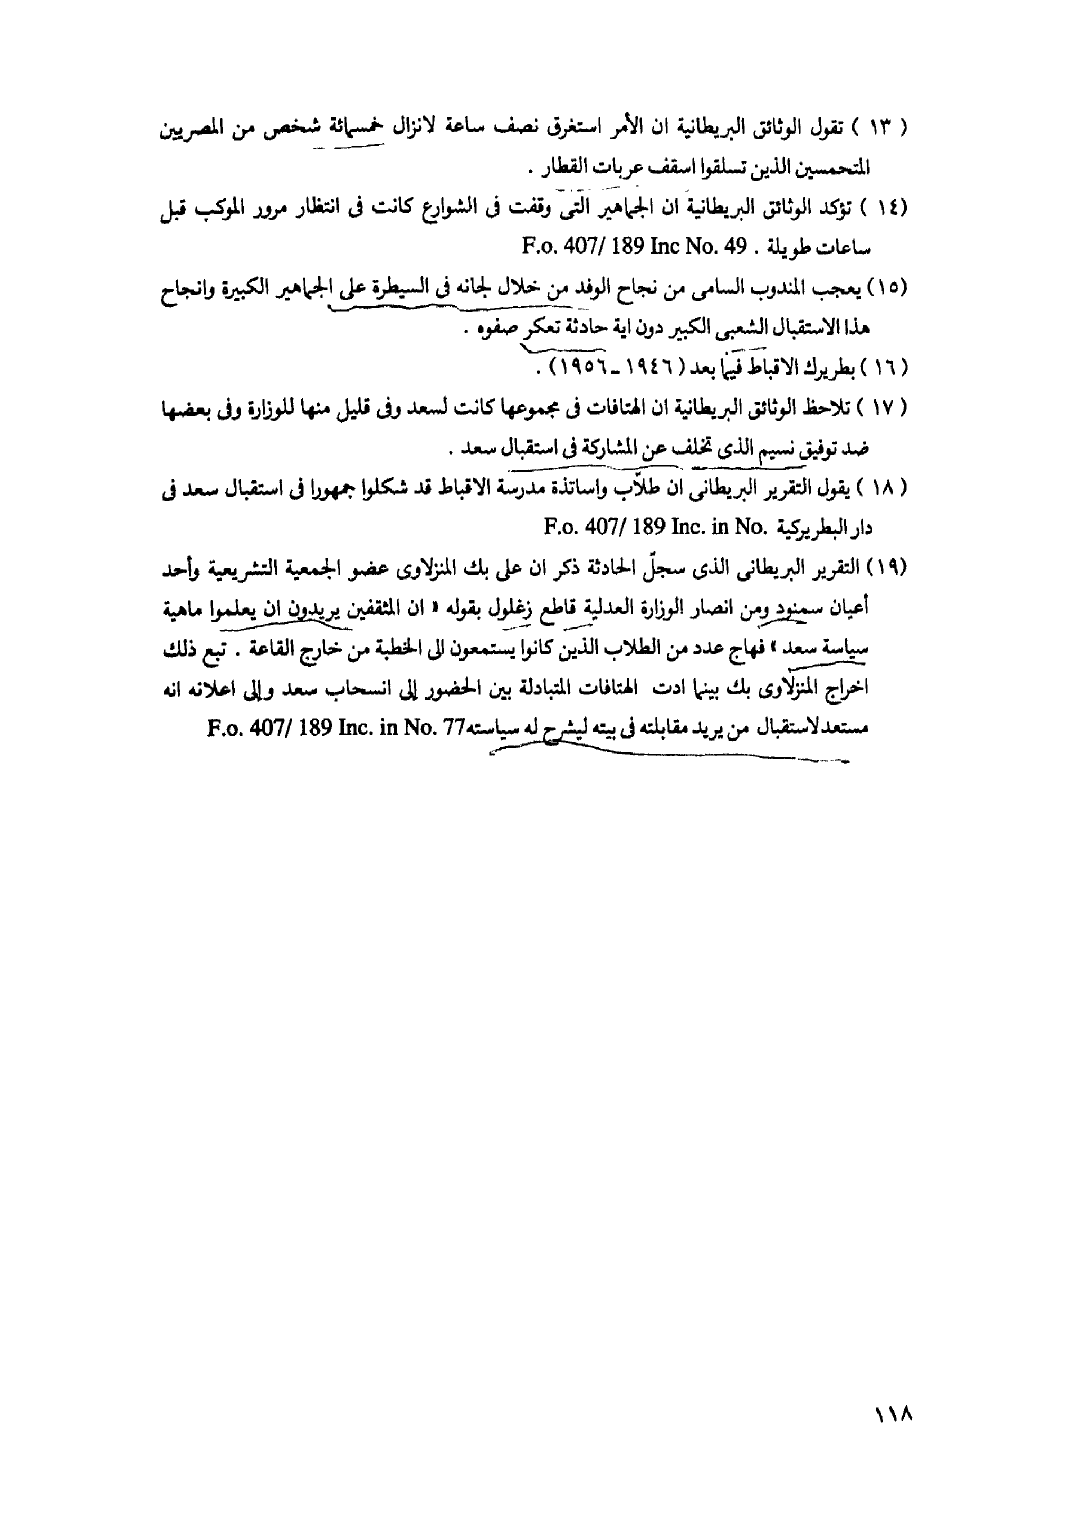 ( ١٣ ) تقول الوثائق البريطانية ان الأمر استغرق نصف ساعة لانزال خمسمائة شخص من المصريين
المتحمسين الذين تسلقوا اسقف عربات القطار .
(١٤ ) تؤكد الوثائق البريطانية ان الجماهير التى وقفت فى الشوارع كانت فى انتظار مرور الموكب قبل
ساعات طويلة . F.o. 407/ 189 Inc No. 49
(١٥) يعجب المندوب السامى من نجاح الوفد من خلال لجانه فى السيطرة على الجماهير الكبيرة وانجاح
هذا الاستقبال الشعبى الكبير دون اية حادثة تعكر صفوه .
(١٦ ) بطريرك الاقباط فيما بعد ( ١٩٤٦ ـ ١٩٥٦) .
( ١٧ ) تلاحظ الوثائق البريطانية ان الهتافات فى مجموعها كانت لسعد وفى قليل منها للوزارة وفى بعضها
ضد توفيق نسيم الذى تخلف عن المشاركة فى استقبال سعد .
( ١٨ ) يقول التقرير البريطانى ان طلاّب واساتذة مدرسة الاقباط قد شكلوا جمهورا فى استقبال سعد فى
دار البطريركية F.o. 407/ 189 Inc. in No.
(١٩) التقرير البريطانى الذى سجلّ الحادثة ذكر ان على بك المنزلاوى عضو الجمعية التشريعية وأحد
أعيان سمنود ومن انصار الوزارة العدلية قاطع زغلول بقوله « ان المثقفين يريدون ان يعلموا ماهية
سياسة سعد » فهاج عدد من الطلاب الذين كانوا يستمعون الى الخطبة من خارج القاعة . تبع ذلك
اخراج المنزلاوى بك بينما ادت الهتافات المتبادلة بين الحضور إلى انسحاب سعد وإلى اعلانه انه
مستعد لاستقبال من يريد مقابلته فى بيته ليشرح له سياسته F.o. 407/ 189 Inc. in No. 77
١١٨